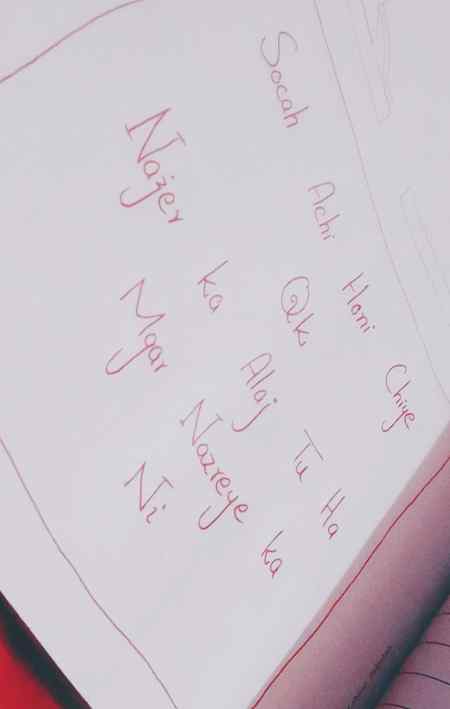 Socah Achi Honi Chiye
Qk
Nazer ka Alaj Tu Ha
Mgar Nazreye ka
Ni